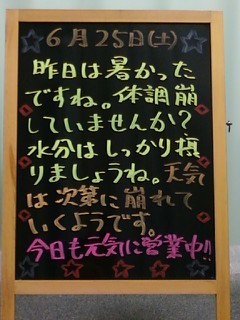 6月25日(土)
昨日は暑かった
ですね。体調崩
していませんか?
水分はしっかり摂
りましょうね。天気
は次第に崩れて
いくようです。
今日も元気に営業中!!